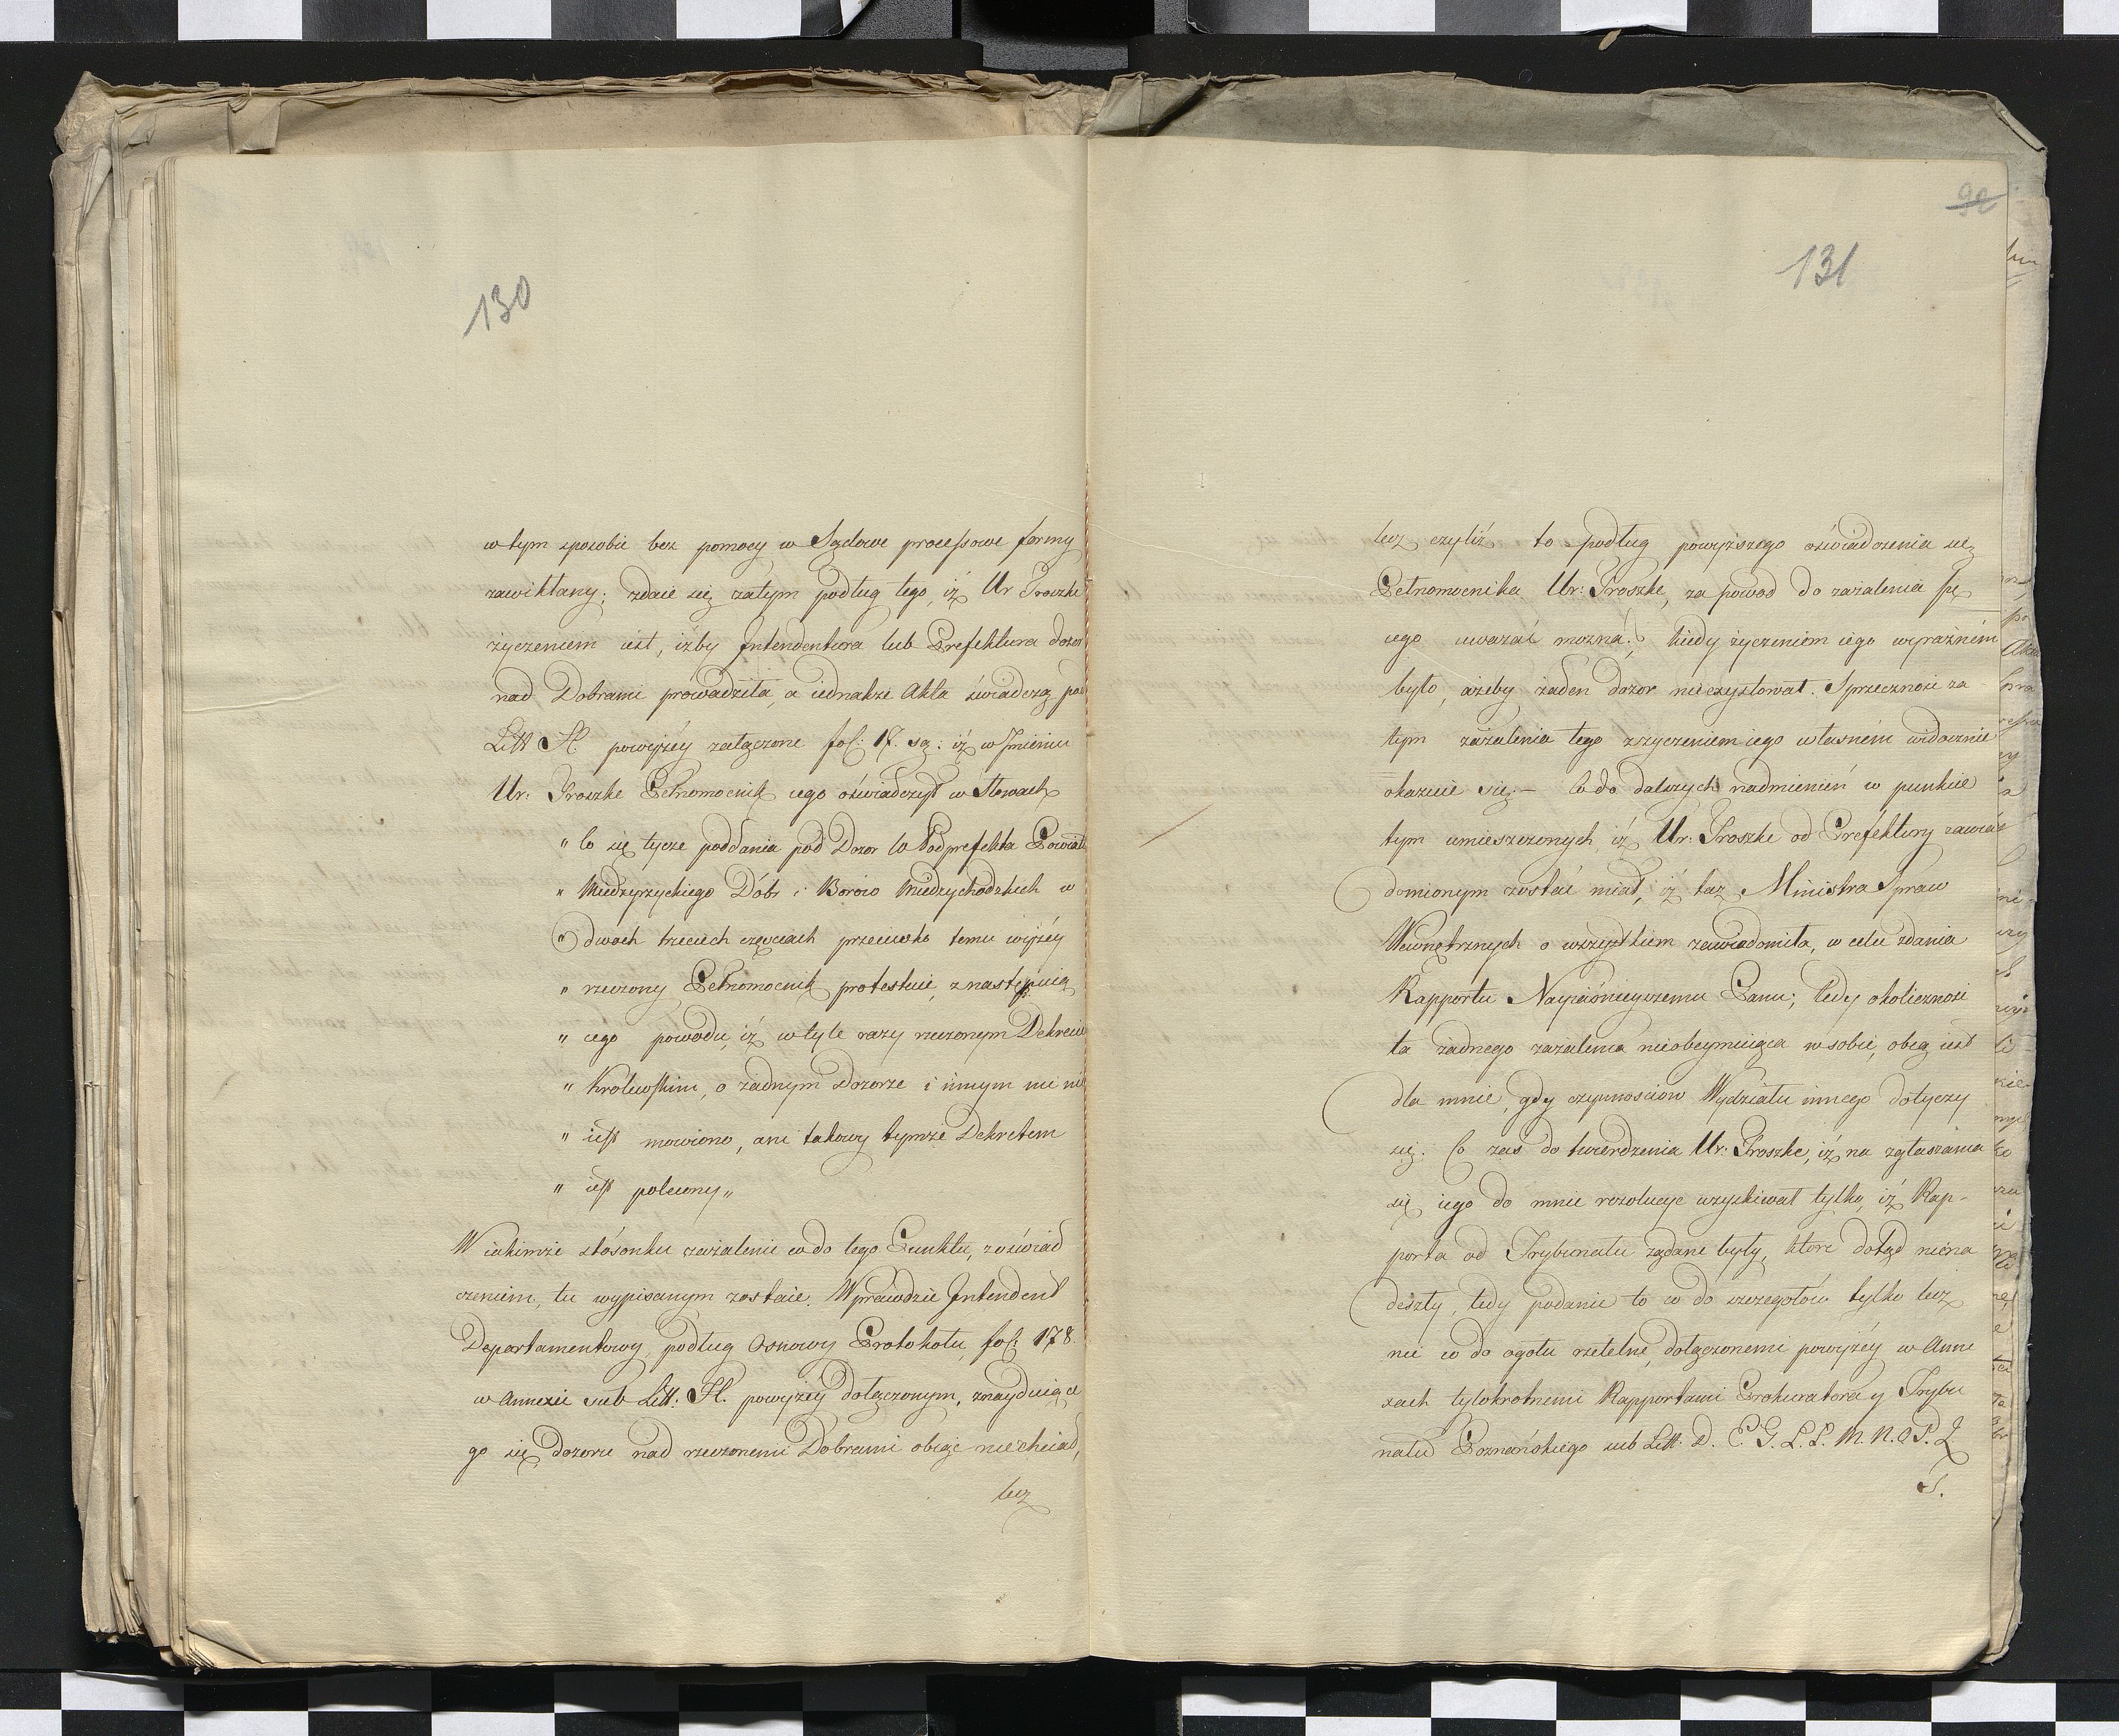 130
w tym sposobie bez pomocy w Sądowe processowe formy
zawikłany; zdaie się zatym podług tego, iż Ur Troszke
życzeniem iest, iżby Intendentura lub Prefektura dozor
nad Dobrami prowadziła, a iednakże Akta świadczą pod
Litt H. powyżéy załączone fol: 17. sq: iż w Jmieniu
Ur: Troszke Pełnomocnik iego oświadczył w Słowach
" Co się tycze poddania pod Dozor W Podprefekta Powiatu
" Międzyrzyckiego Dóbr i Borów Międzychodzkich w
" dwoch trzecich częściach przeciwko temu wyżéy
" rzeczony Pełnomocnik protestuie, z następuią
" cego powodu, iż w tyle razy rzeczonym Dekrecie
" Królewskim, o żadnym Dozorze i innym nie
" iest mowiono, ani takowy tymże Dekretem
" iest polecony "
W iakimże stósonku zażalenie co do tego Punktu, z oświad
czeniem, tu wypisanym zostaie. Wprawdzie Intendent
Departamentowy, podług Osnowy Protokołu, fol: 178.
w Annexie sub Litt: H. powyżéy dołączonym, znayduiące
go się, dozoru nad rzeczonemi Dobrami obiąć nie chciał,
lecz
92
131
lecz czyliż to podług powyższego oświadczenia się
Pełnomocnika Ur: Troszke, za powod do zażalenia się
iego uważać można? kiedy życzeniem iego wyraźném
było, ażeby żaden dozor nie exystował. Sprzeczność za
tym zażalenia tego z życzeniem iego własném widocznie
okazuie się. — Co do dalszych nadmienień w punkcie
tym umieszczonych, iż Ur: Troszke od Prefektury zawia
domionym zostać miał, iż taż Ministra Spraw
Wewnętrznych o wszystkiem zawiadomiła, w celu zdania
Rapportu Nayiaśnieyszemu Panu; tedy okoliczność
ta żadnego zażalenia nieobeymuiąca w sobie, obcą iest
dla mnie, gdy czynnościow Wydziału innego dotyczy
się. Co zaś do twierdzenia Ur: Troszke, iż na zgłaszania
się iego do mnie rezolucye uzyskiwał tylko, iż Rap-
porta od Trybunału żądane były, które dotąd niena
deszły, tedy podanie to co do szczegołów tylko lecz
nie co do ogołu rzetelne, dołączonemi powyżéy w Anne
xach tylokrotnemi Rapportami Prokuratora y Trybu
nału Poznańskiego sub Litt. D. E. G. L. L. M. N. O P. Q
S.